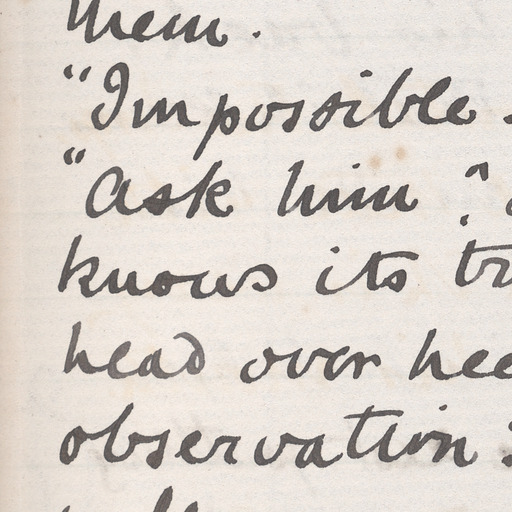 them.
"Impossible.
"Ask him?"
knows its tr
head over hee
observation